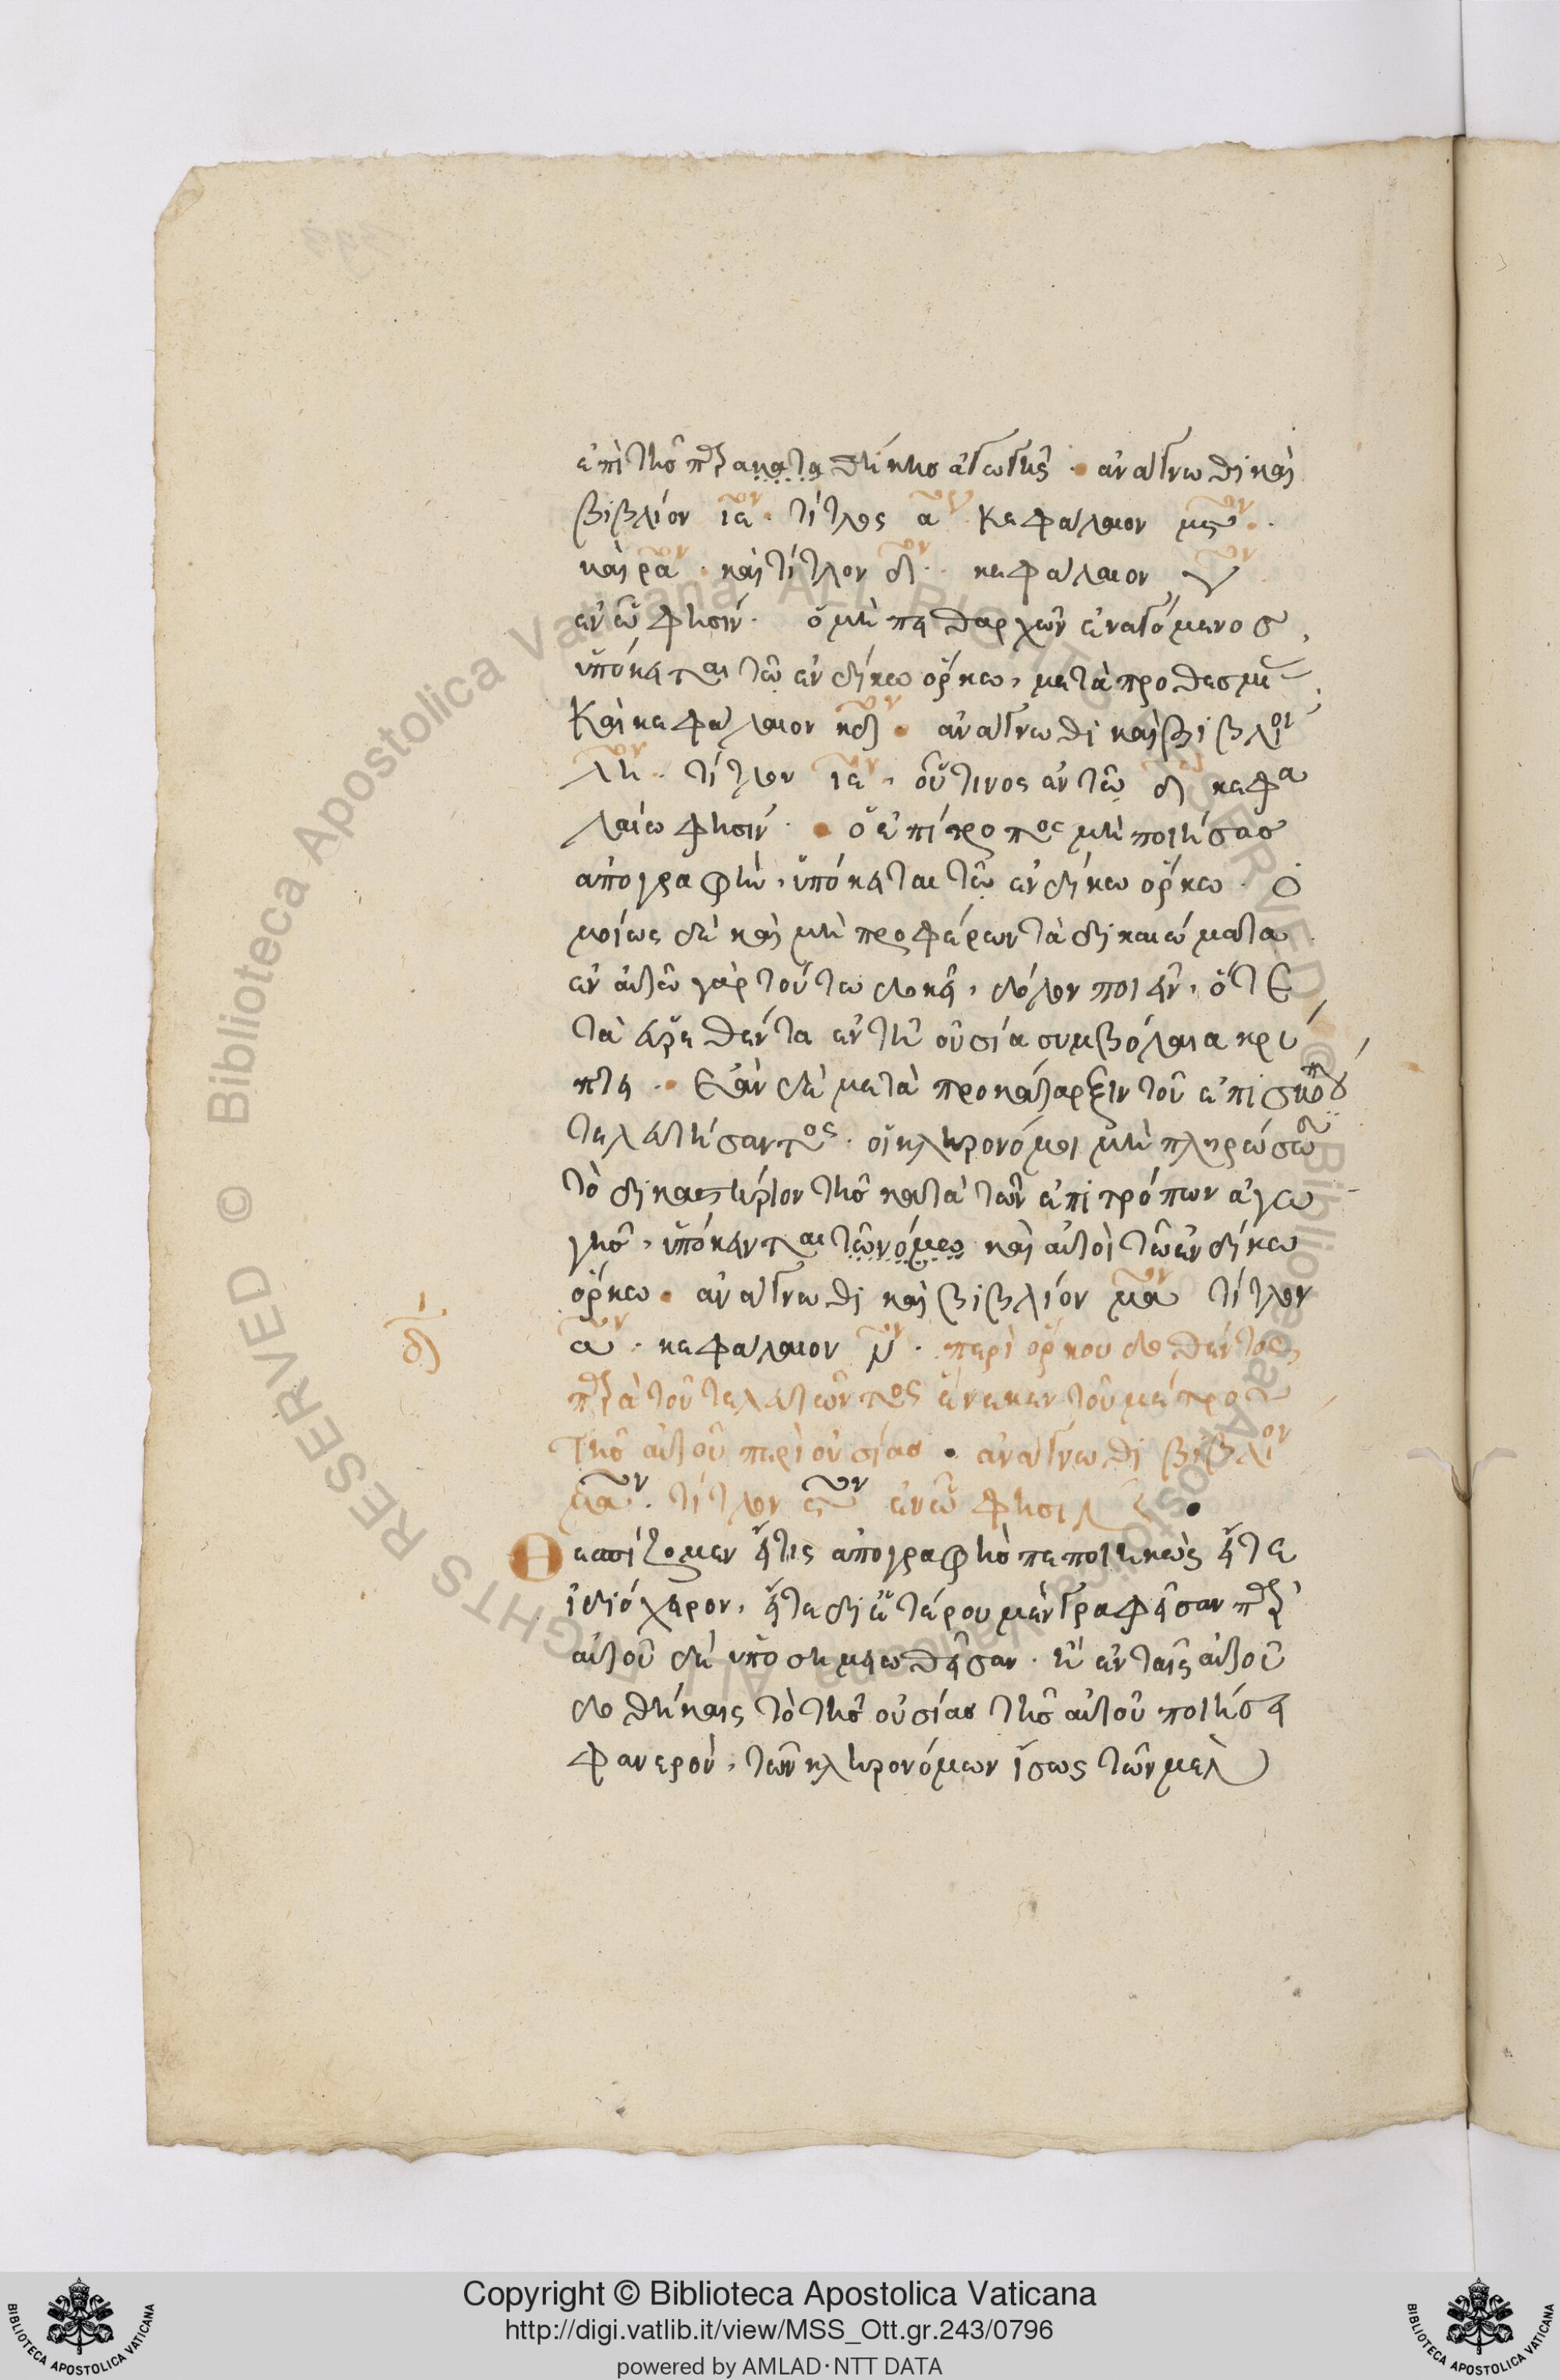 ἐπὶ τῆς παρακαταθήκης ἀγωγῆς · ἀνάγνωθι καὶ
βιβλίον ιε΄ον · τίτλος α΄ον κεφάλαιον μϛ΄ον ·
καὶ ρα΄ον · καὶ τίτλον δ΄ον · κεφάλαιον ν΄ον
ἐν ὧ φησίν · ὁ μὴ πειθαρχῶν ἐναγόμενος,
ὑπόκειται τῶ ἐνδίκω ὅρκω, μετὰ προθεσμί
καὶ κεφάλαιον κδ΄ον · ἀνάγνωθι καὶ βιβλίον
λη΄ον · τίτλον ια΄ον, οὗτινος ἐν τῶ δ΄ω κεφα
λαίω φησίν · ὁ ἐπίτροπος μὴ ποιήσας
ἀπογραφὴν, ὑπόκειται τῶ ἐνδίκω ὅρκω · ὁ
μοίως δὲ καὶ μὴ προφέρων τὰ δικαιώματα
ἐν αὐτῶ γὰρ τούτω δοκεῖ, δόλον ποιεῖν, ὅτε
τὰ εὑρεθέντα ἐν τῇ οὐσία συμβόλαια κρύ
πτει · ἐὰν δὲ μετὰ προκάταρξιν τοῦ ἐπισκόπου
τελευτήσαντος · οἱ κληρονόμοι μὴ πληρώσω
τὸ δικαστήριον τῆς κατὰ τῶν ἐπιτρόπων ἀγω
γῆς, ὑπόκεινται τῶ νόμω καὶ αὐτοὶ τῶ ἐνδίκω
ὅρκω · ἀνάγνωθι καὶ βιβλίον μα΄ον τίτλον
α΄ον · κεφάλαιον μ΄ον · περὶ ὅρκου δοθέντος
παρὰ τοῦ τελευτῶντος ἕνεκεν τοῦ μέτρου
τῆς αὐτοῦ περιουσίας · ἀνάγνωθι βιβλίον
μα΄ον · τίτλον ϛ΄ον ἐν ὧ φησι
δ΄
Θεσπίζομεν εἴ τις ἀπογραφὴν πεποιηκὼς εἴτε
ἰδιόχειρον, εἴτε δι' ἑτέρου μὲν γραφεῖσαν παρ'
αὐτοῦ δὲ ὑποσημειωθεῖσαν · ἢ ἐν ταῖς αὐτοῦ
δοθήκαις τὸ τῆς οὐσίας τῆς αὐτοῦ ποιήσει
φανερὸν, τῶν κληρονόμων ἴσως τῶν μελ
Copyright © Biblioteca Apostolica Vaticana
http://digi.vatlib.it/view/MSS_Ott.gr.243/0796
powered by AMLAD·NTT DATA
BIBLIOTECA APOSTOLICA VATICANA
BIBLIOTECA APOSTOLICA VATICANA
© Biblioteca Apostolica Vaticana ALL RIGHTS RESERVED
© Biblioteca Apostolica Vaticana ALL RIGHTS RESERVED